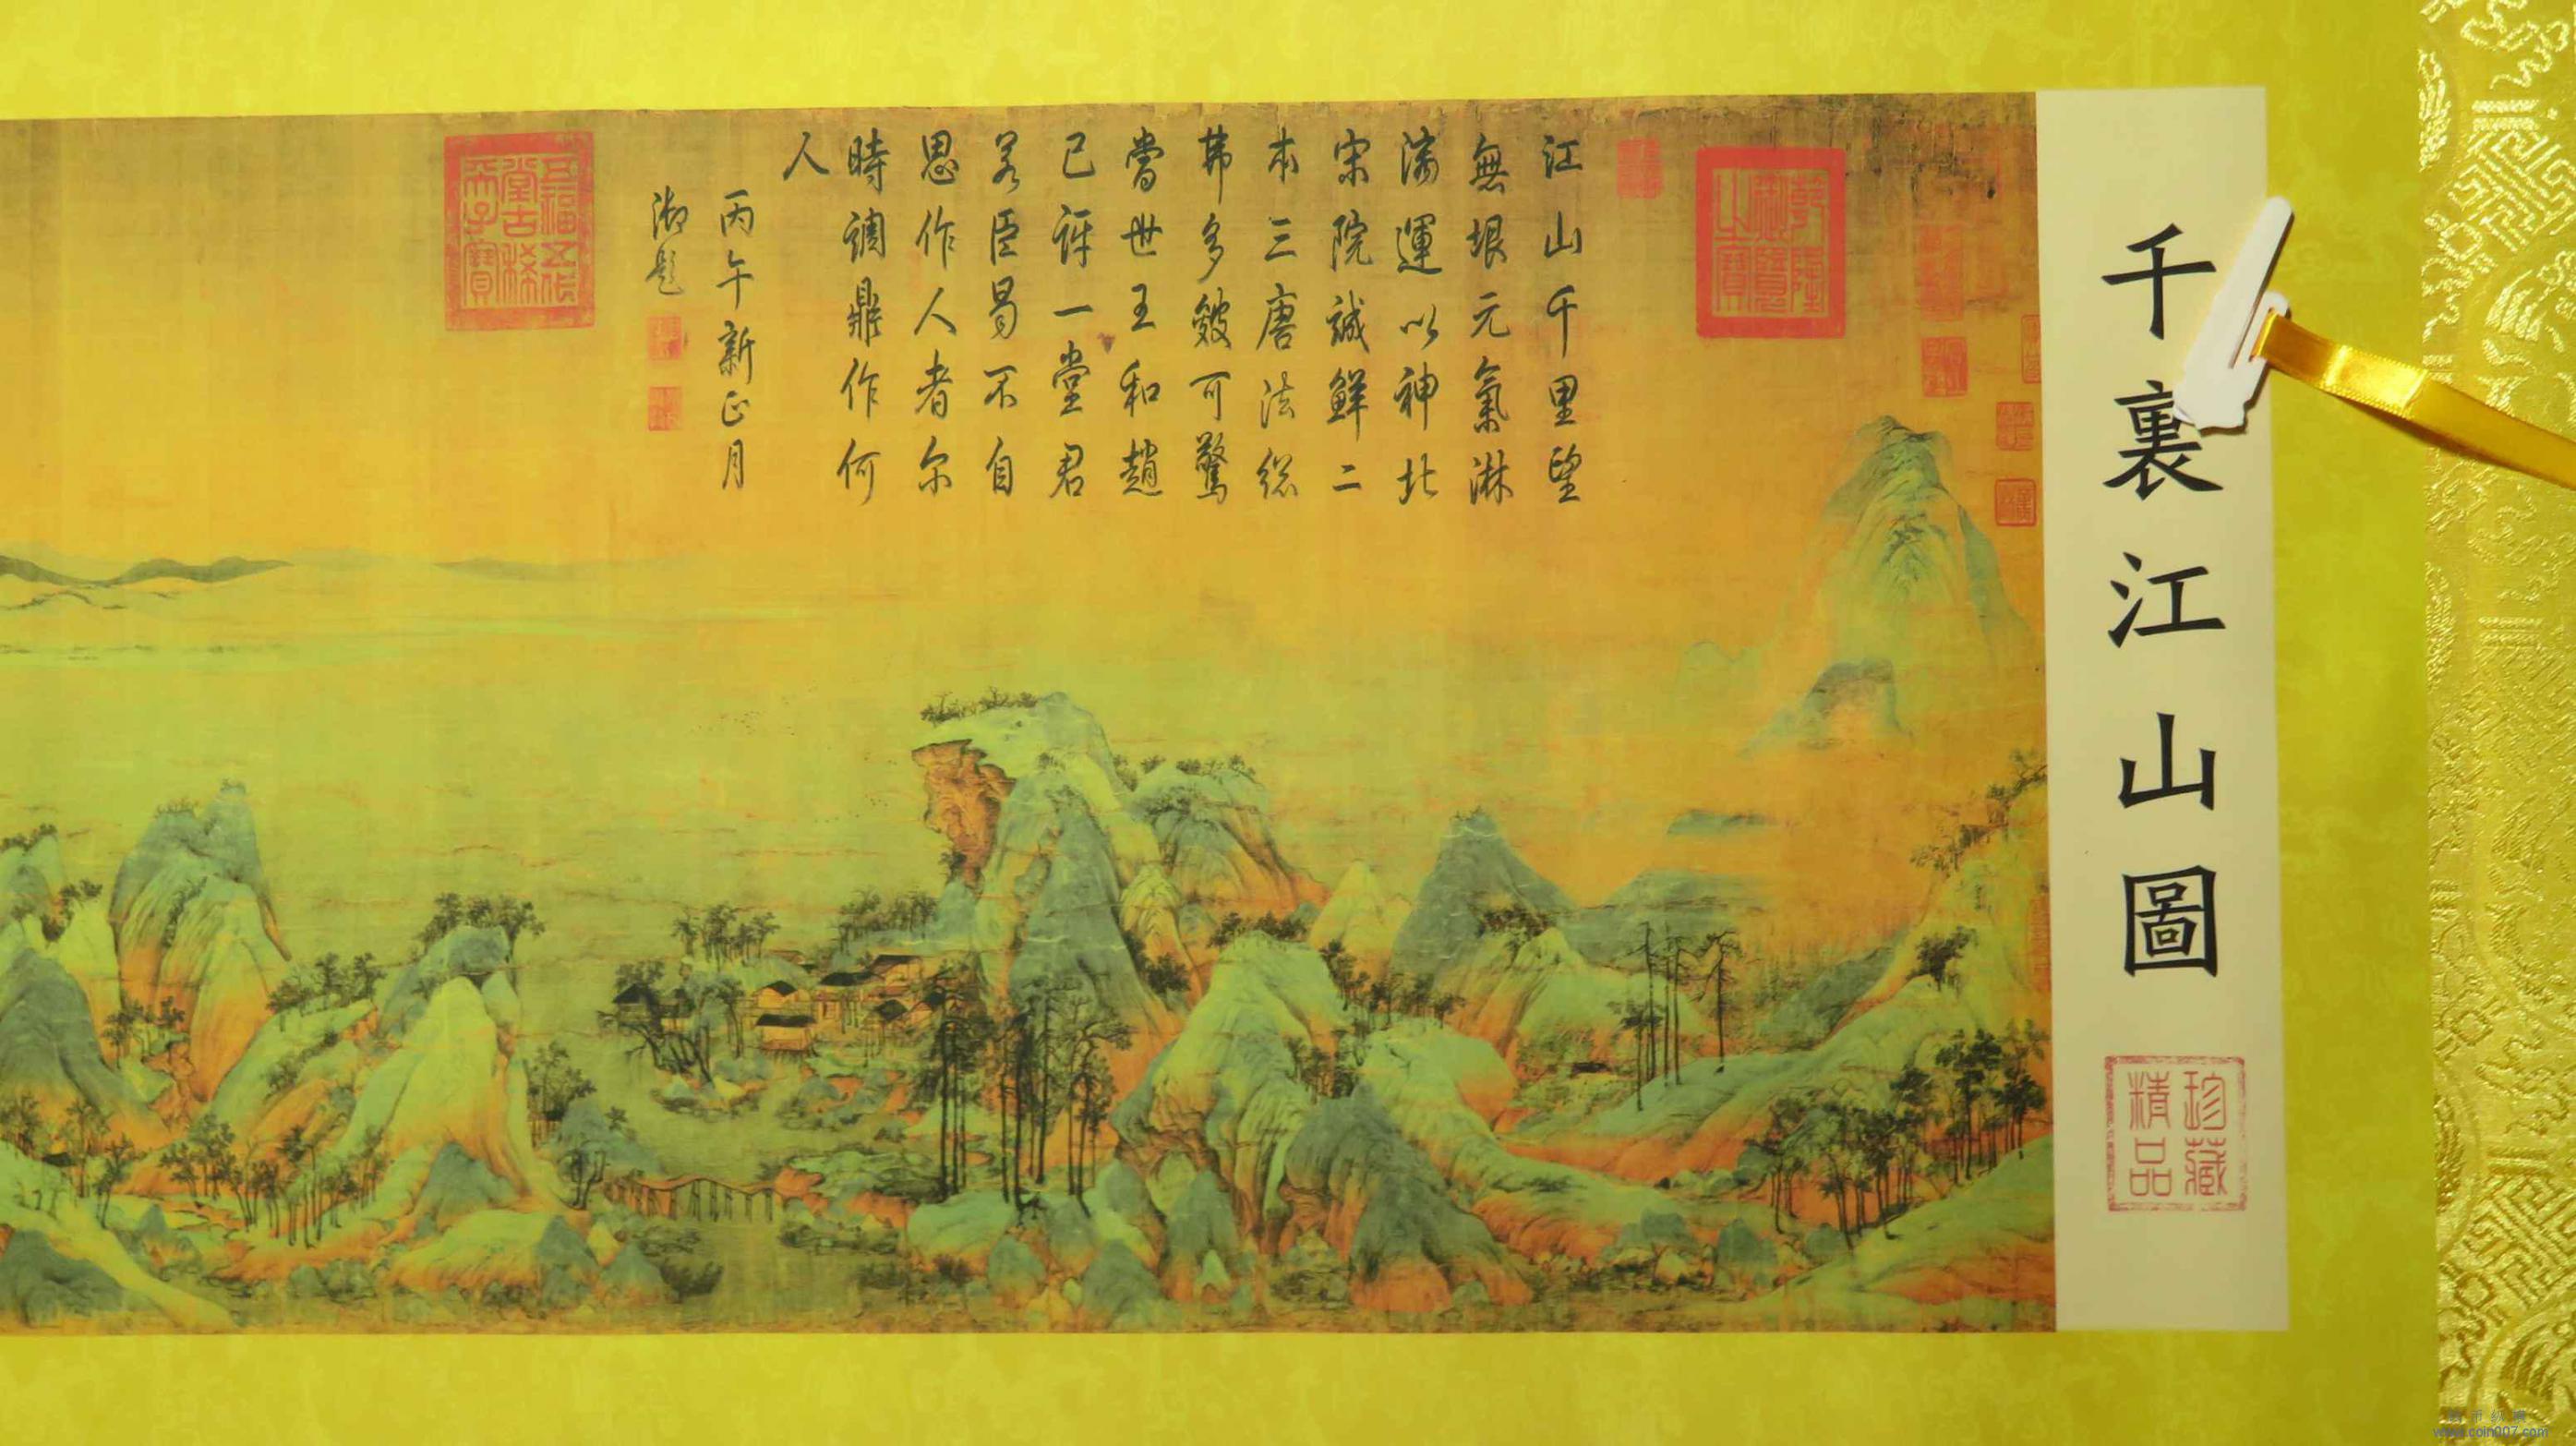 千裏江山圖
珍藏
精品
乾隆
御覽
之寶
江山千里望
無垠元氣淋
漓運以神北
宋院誠鮮二
本三唐法総
弗多皴可驚
當世王和趙
已訝一堂君
若臣曷不自
思作人者尔
時調鼎作何
人
丙午新正月
御題
五福五代
堂古稀
天子寶
www.coin007.com